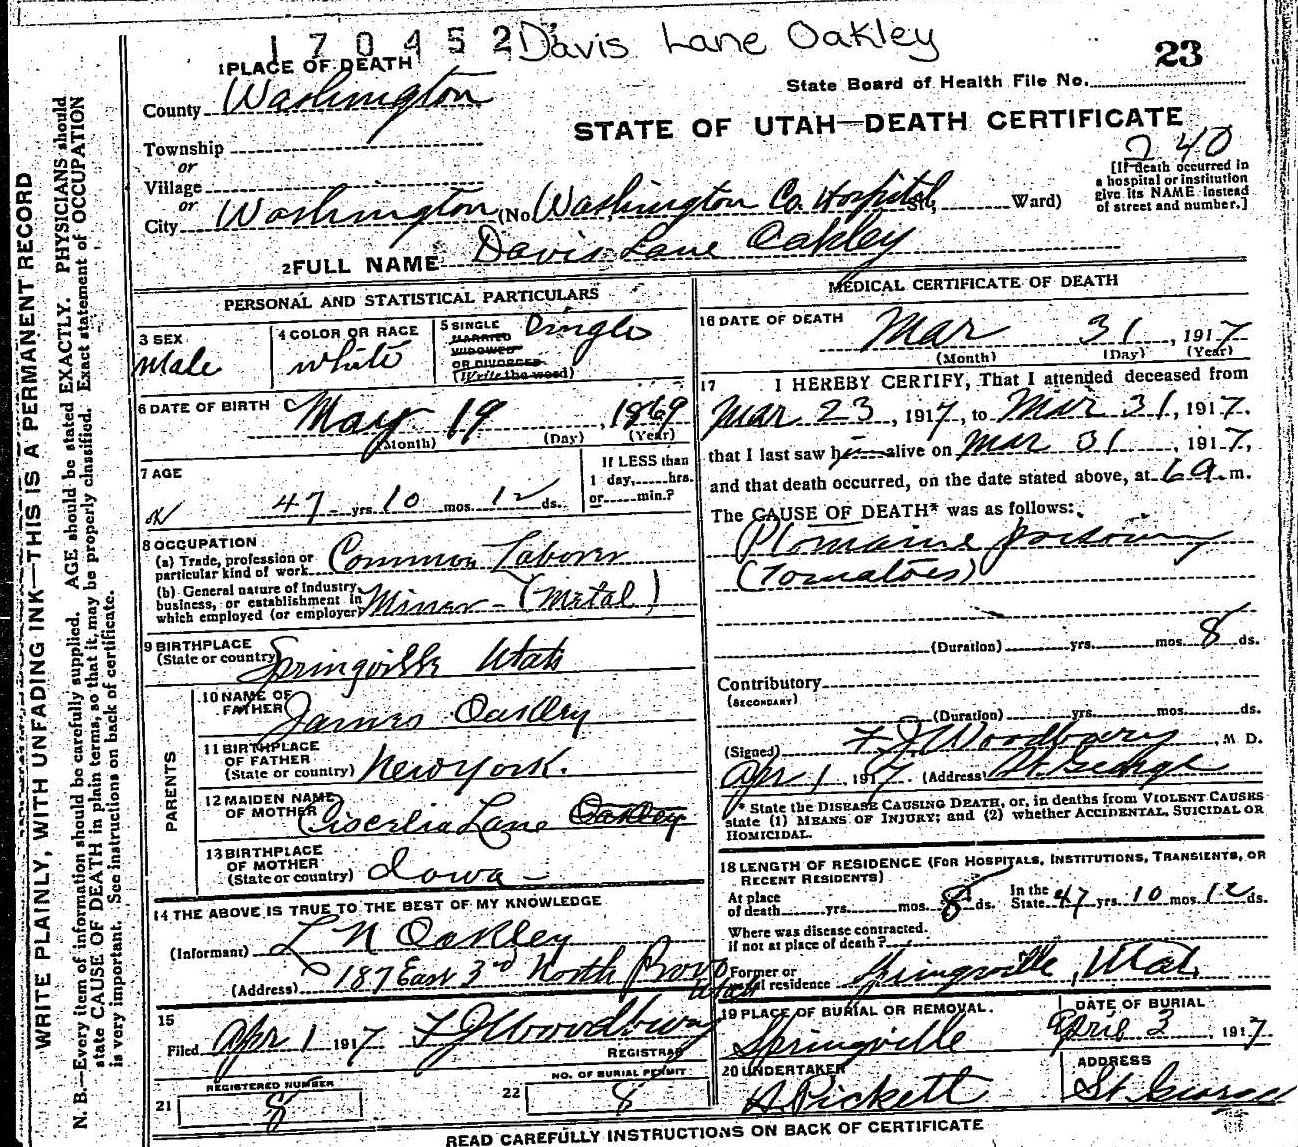 170452 Davis Lane Oakley
23
1 PLACE OF DEATH
State Board of Health File No.
County Washington
STATE OF UTAH—DEATH CERTIFICATE
Township
or
240
Village
or
[If death occurred in
a hospital or institution
give its NAME instead
of street and number.]
City Washington (No. Washington Co. Hospital St., Ward)
2 FULL NAME Davis Lane Oakley
PERSONAL AND STATISTICAL PARTICULARS
3 SEX
Male
4 COLOR OR RACE
White
5 SINGLE
MARRIED
WIDOWED
OR DIVORCED
(Write the word)
Single
6 DATE OF BIRTH May 19, 1869
(Month) (Day) (Year)
7 AGE
47 yrs. 10 mos. 12 ds.
If LESS than
1 day, hrs.
or min.?
8 OCCUPATION
(a) Trade, profession or
particular kind of work Common Laborer
(b) General nature of Industry,
business, or establishment in
which employed (or employer) Miner - (Metal)
9 BIRTHPLACE
(State or country) Springville Utah
PARENTS
10 NAME OF
FATHER James Oakley
11 BIRTHPLACE
OF FATHER
(State or country) New York.
12 MAIDEN NAME
OF MOTHER Lane Oakley
13 BIRTHPLACE
OF MOTHER
(State or country) Iowa
14 THE ABOVE IS TRUE TO THE BEST OF MY KNOWLEDGE
(Informant) L N Oakley
(Address) 187 East 3rd North Provo
Utah
15
Filed Apr 1 1917 F J Woodbury
REGISTRAR
REGISTERED NUMBER
21 8
NO. OF BURIAL PERMIT
22 8
MEDICAL CERTIFICATE OF DEATH
16 DATE OF DEATH Mar 31, 1917
(Month) (Day) (Year)
17 I HEREBY CERTIFY, That I attended deceased from
Mar 23, 1917, to Mar 31, 1917.
that I last saw him alive on Mar 31, 1917,
and that death occurred, on the date stated above, at 6 a. m.
The CAUSE OF DEATH* was as follows:
Ptomaine poisoning
(Tomatoes)
(Duration) yrs. mos. 8 ds.
Contributory
(SECONDARY)
(Duration) yrs. mos. ds.
(Signed) F J Woodbury, M D.
Apr 1 1917 (Address) St. George
* State the DISEASE CAUSING DEATH, or, in deaths from VIOLENT CAUSES
state (1) MEANS OF INJURY; and (2) whether ACCIDENTAL, SUICIDAL OR
HOMICIDAL.
18 LENGTH OF RESIDENCE (FOR HOSPITALS, INSTITUTIONS, TRANSIENTS, OR
RECENT RESIDENTS)
At place
of death yrs. mos. 8 ds.
In the
State 47 yrs. 10 mos. 12 ds.
Where was disease contracted.
if not at place of death?
Former or
residence Springville, Utah
19 PLACE OF BURIAL OR REMOVAL.
Springville
DATE OF BURIAL
April 3, 1917
20 UNDERTAKER
A Pickett
ADDRESS
St. George
READ CAREFULLY INSTRUCTIONS ON BACK OF CERTIFICATE
WRITE PLAINLY, WITH UNFADING INK—THIS IS A PERMANENT RECORD
N. B.—Every item of information should be carefully supplied. AGE should be stated EXACTLY. PHYSICIANS should
state CAUSE OF DEATH in plain terms, so that it may be properly classified. Exact statement of OCCUPATION
is very important. See instructions on back of certificate.